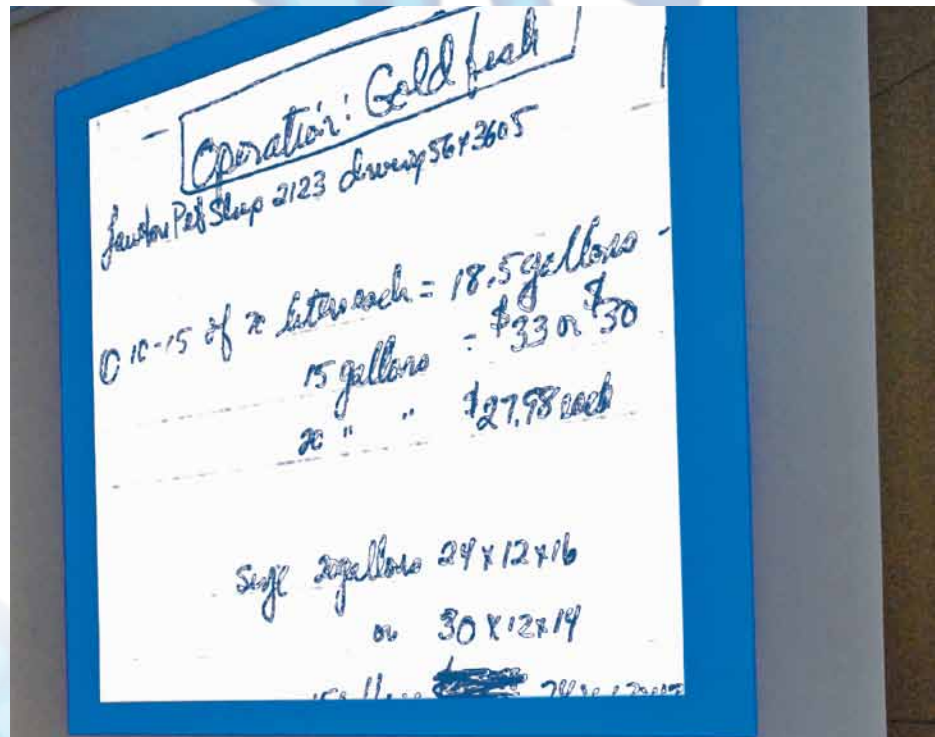 Operation: Goldfish
Pet Shop 2123 56 & 3605
10-15 of 20 liters each = 18.5 gallons -
15 gallons = $33 or $30
20 " " $27.98 each
Size 20gallons 24 x 12 x 16
or 30 x 12 x 14